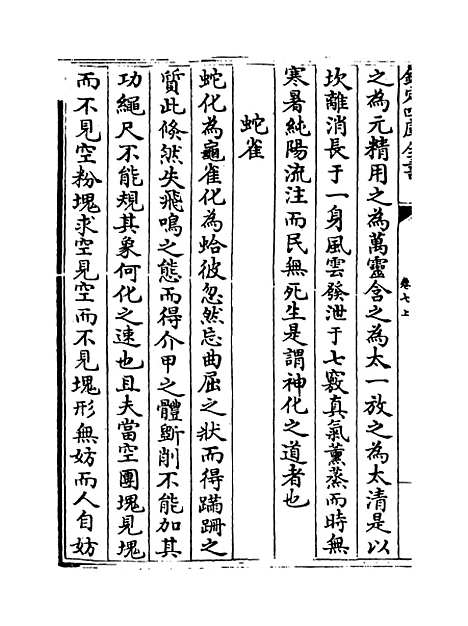 欽定四庫全書
卷七上
之為元精用之為萬靈含之為太一放之為太清是以
坎離消長于一身風雲發泄于七竅真氣薰蒸而時無
寒暑純陽流注而民無死生是謂神化之道者也
蛇雀
蛇化為龜雀化為蛤彼忽然忘曲屈之狀而得蹣跚之
質此倏然失飛鳴之態而得介甲之體斲削不能加其
功繩尺不能規其象何化之速也且夫當空團塊見塊
而不見空粉塊求空見空而不見塊形無妨而人自妨